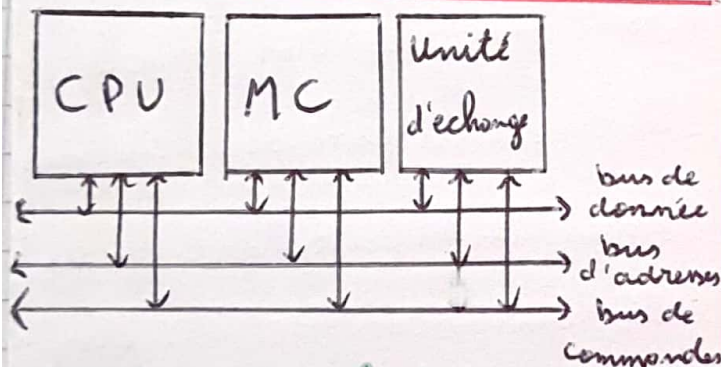 CPU
MC
Unité
d'echange
bus de
donnée
bus
d'adresses
bus de
commandes